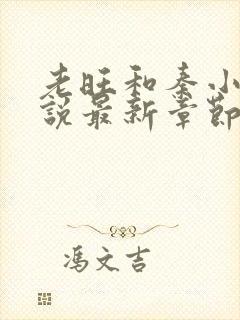 老旺和秦小
说最新章節
冯文吉